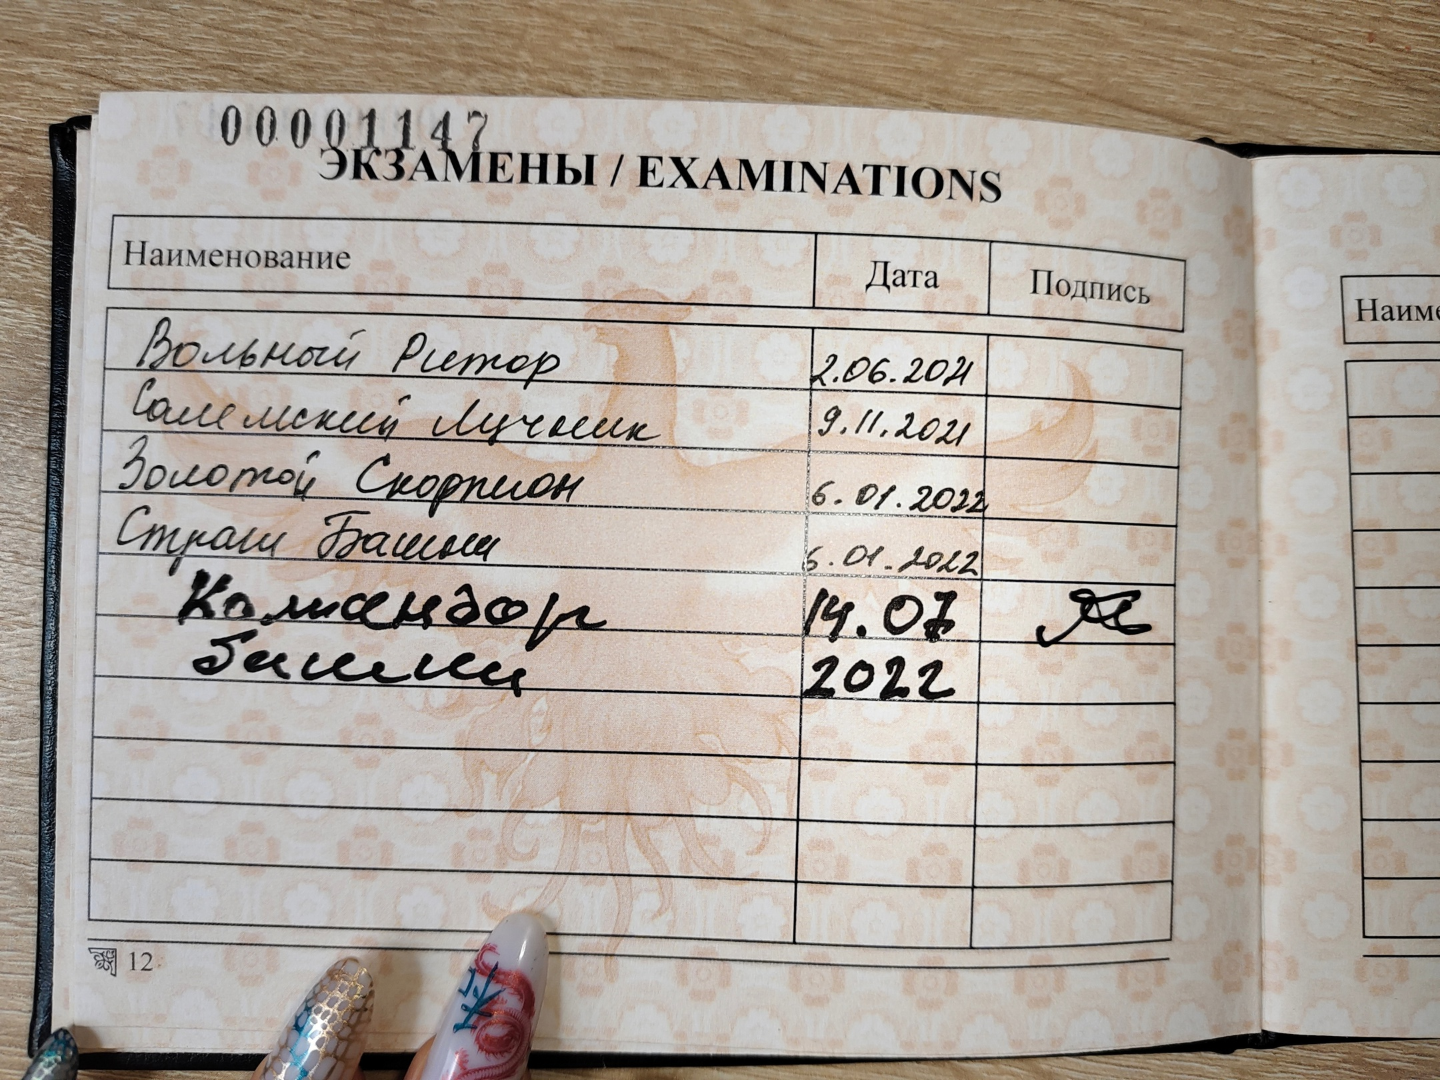 00001147
ЭКЗАМЕНЫ / EXAMINATIONS
Наименование Дата Подпись
Вольный Ритор 2.06.2021
Салемский Лучник 9.11.2021
Золотой Скорпион 6.01.2022
Страж Башни 6.01.2022
Командор 14.07
Башни 2022
12
Наиме